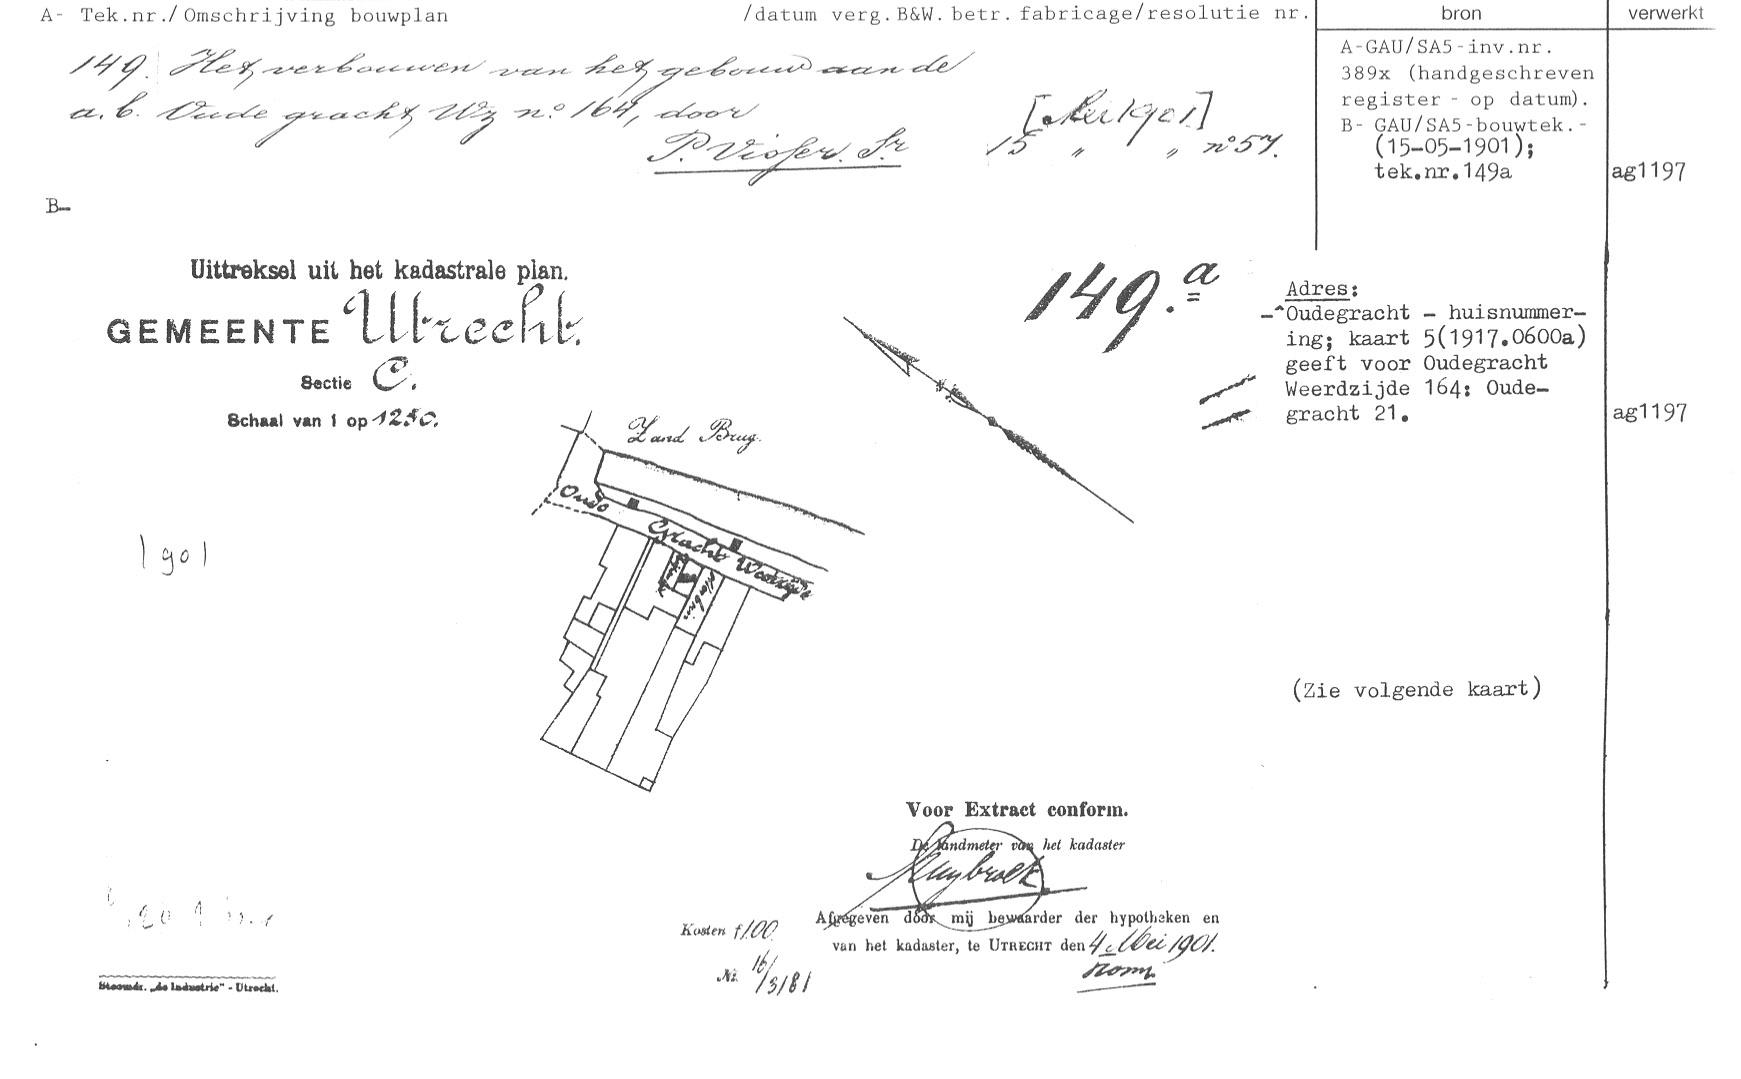 A- Tek.nr./Omschrijving bouwplan /datum verg.B&W. betr. fabricage/resolutie nr. bron verwerkt
149. Het verbouwen van het gebouw aan de
a.b. Oude gracht Wz no. 164, door [Mei 1901]
P. Visser Sr 15 " " no 57.
A-GAU/SA5-inv.nr.
389x (handgeschreven
register - op datum).
B- GAU/SA5-bouwtek.-
(15-05-1901);
tek.nr.149a ag1197
B-
Uittreksel uit het kadastrale plan.
GEMEENTE Utrecht.
Sectie C.
Schaal van 1 op 1250.
149.a
Adres:
-^Oudegracht - huisnummer-
ing; kaart 5(1917.0600a)
geeft voor Oudegracht
Weerdzijde 164: Oude-
gracht 21. ag1197
Zand Brug.
Oude Gracht Weerdzijde
1901
(Zie volgende kaart)
Voor Extract conform.
De landmeter van het kadaster
Afgegeven door mij bewaarder der hypotheken en
van het kadaster, te UTRECHT den 4 Mei 1901.
Kosten f1.00
No. 16/3181
Stoomdr. „de Industrie" - Utrecht.